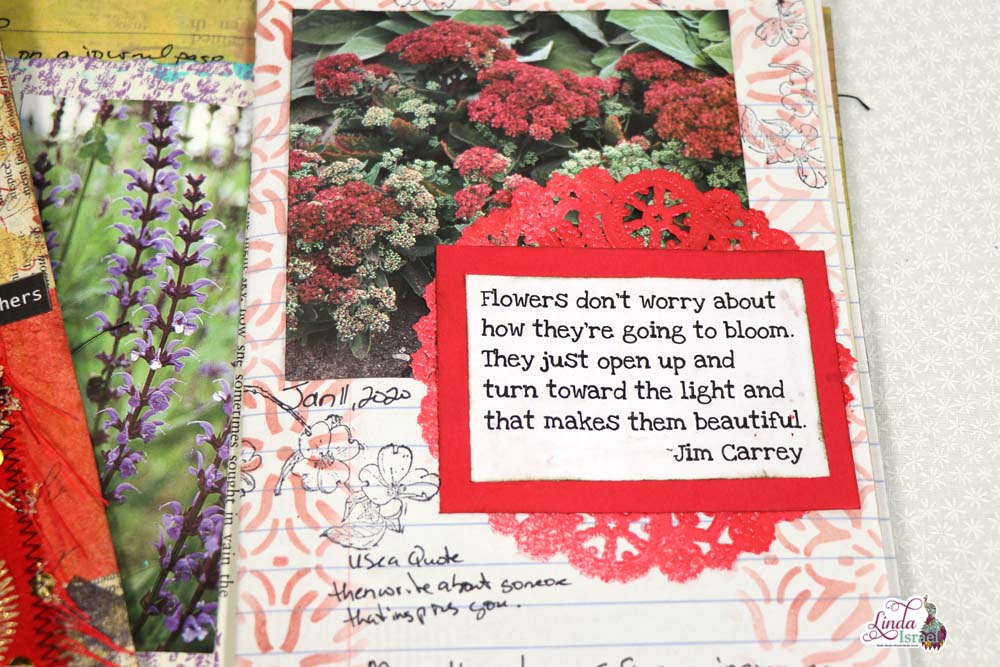 on a journal page
hers
how she sometimes sought in vain the
Flowers don't worry about
how they're going to bloom.
They just open up and
turn toward the light and
that makes them beautiful.
~Jim Carrey
Jan 11, 2020
Use a Quote
then write about someone
that inspires you.
Linda
Israel